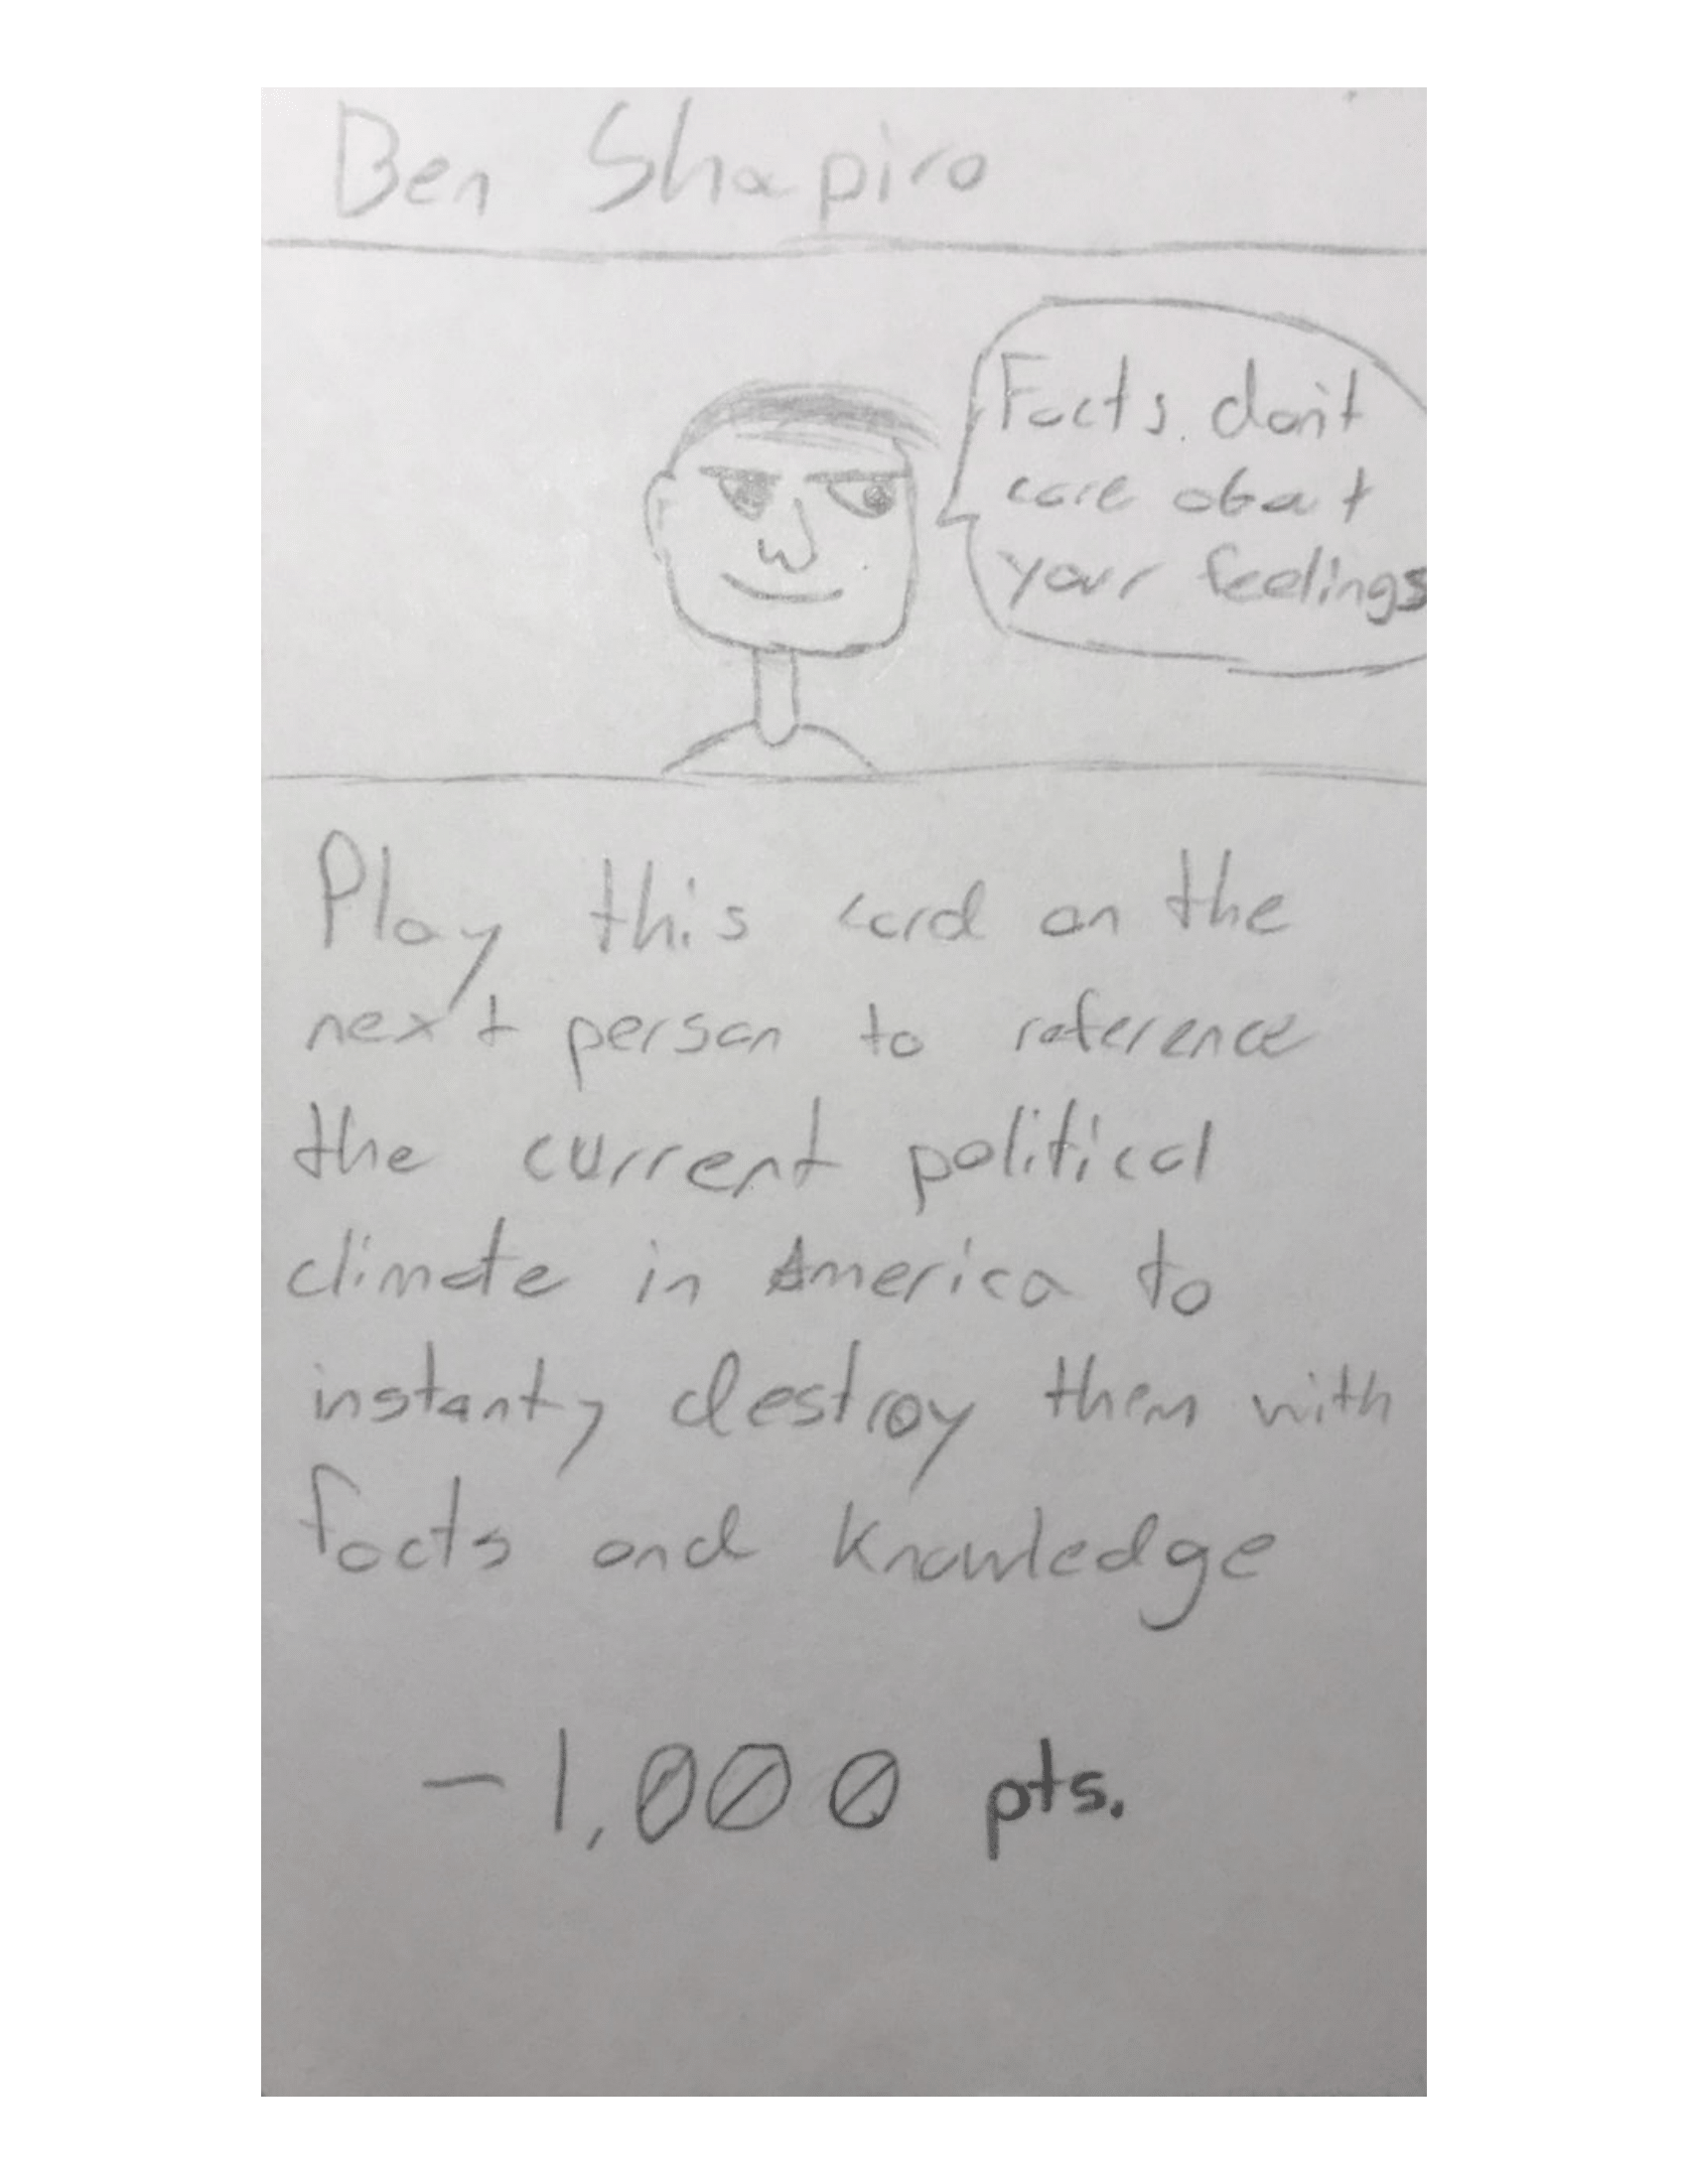 Ben Shapiro
Facts don't
care about
your feelings
Play this card on the
next person to reference
the current political
climate in America to
instanty destroy them with
facts and knowledge
-1,000 pts.